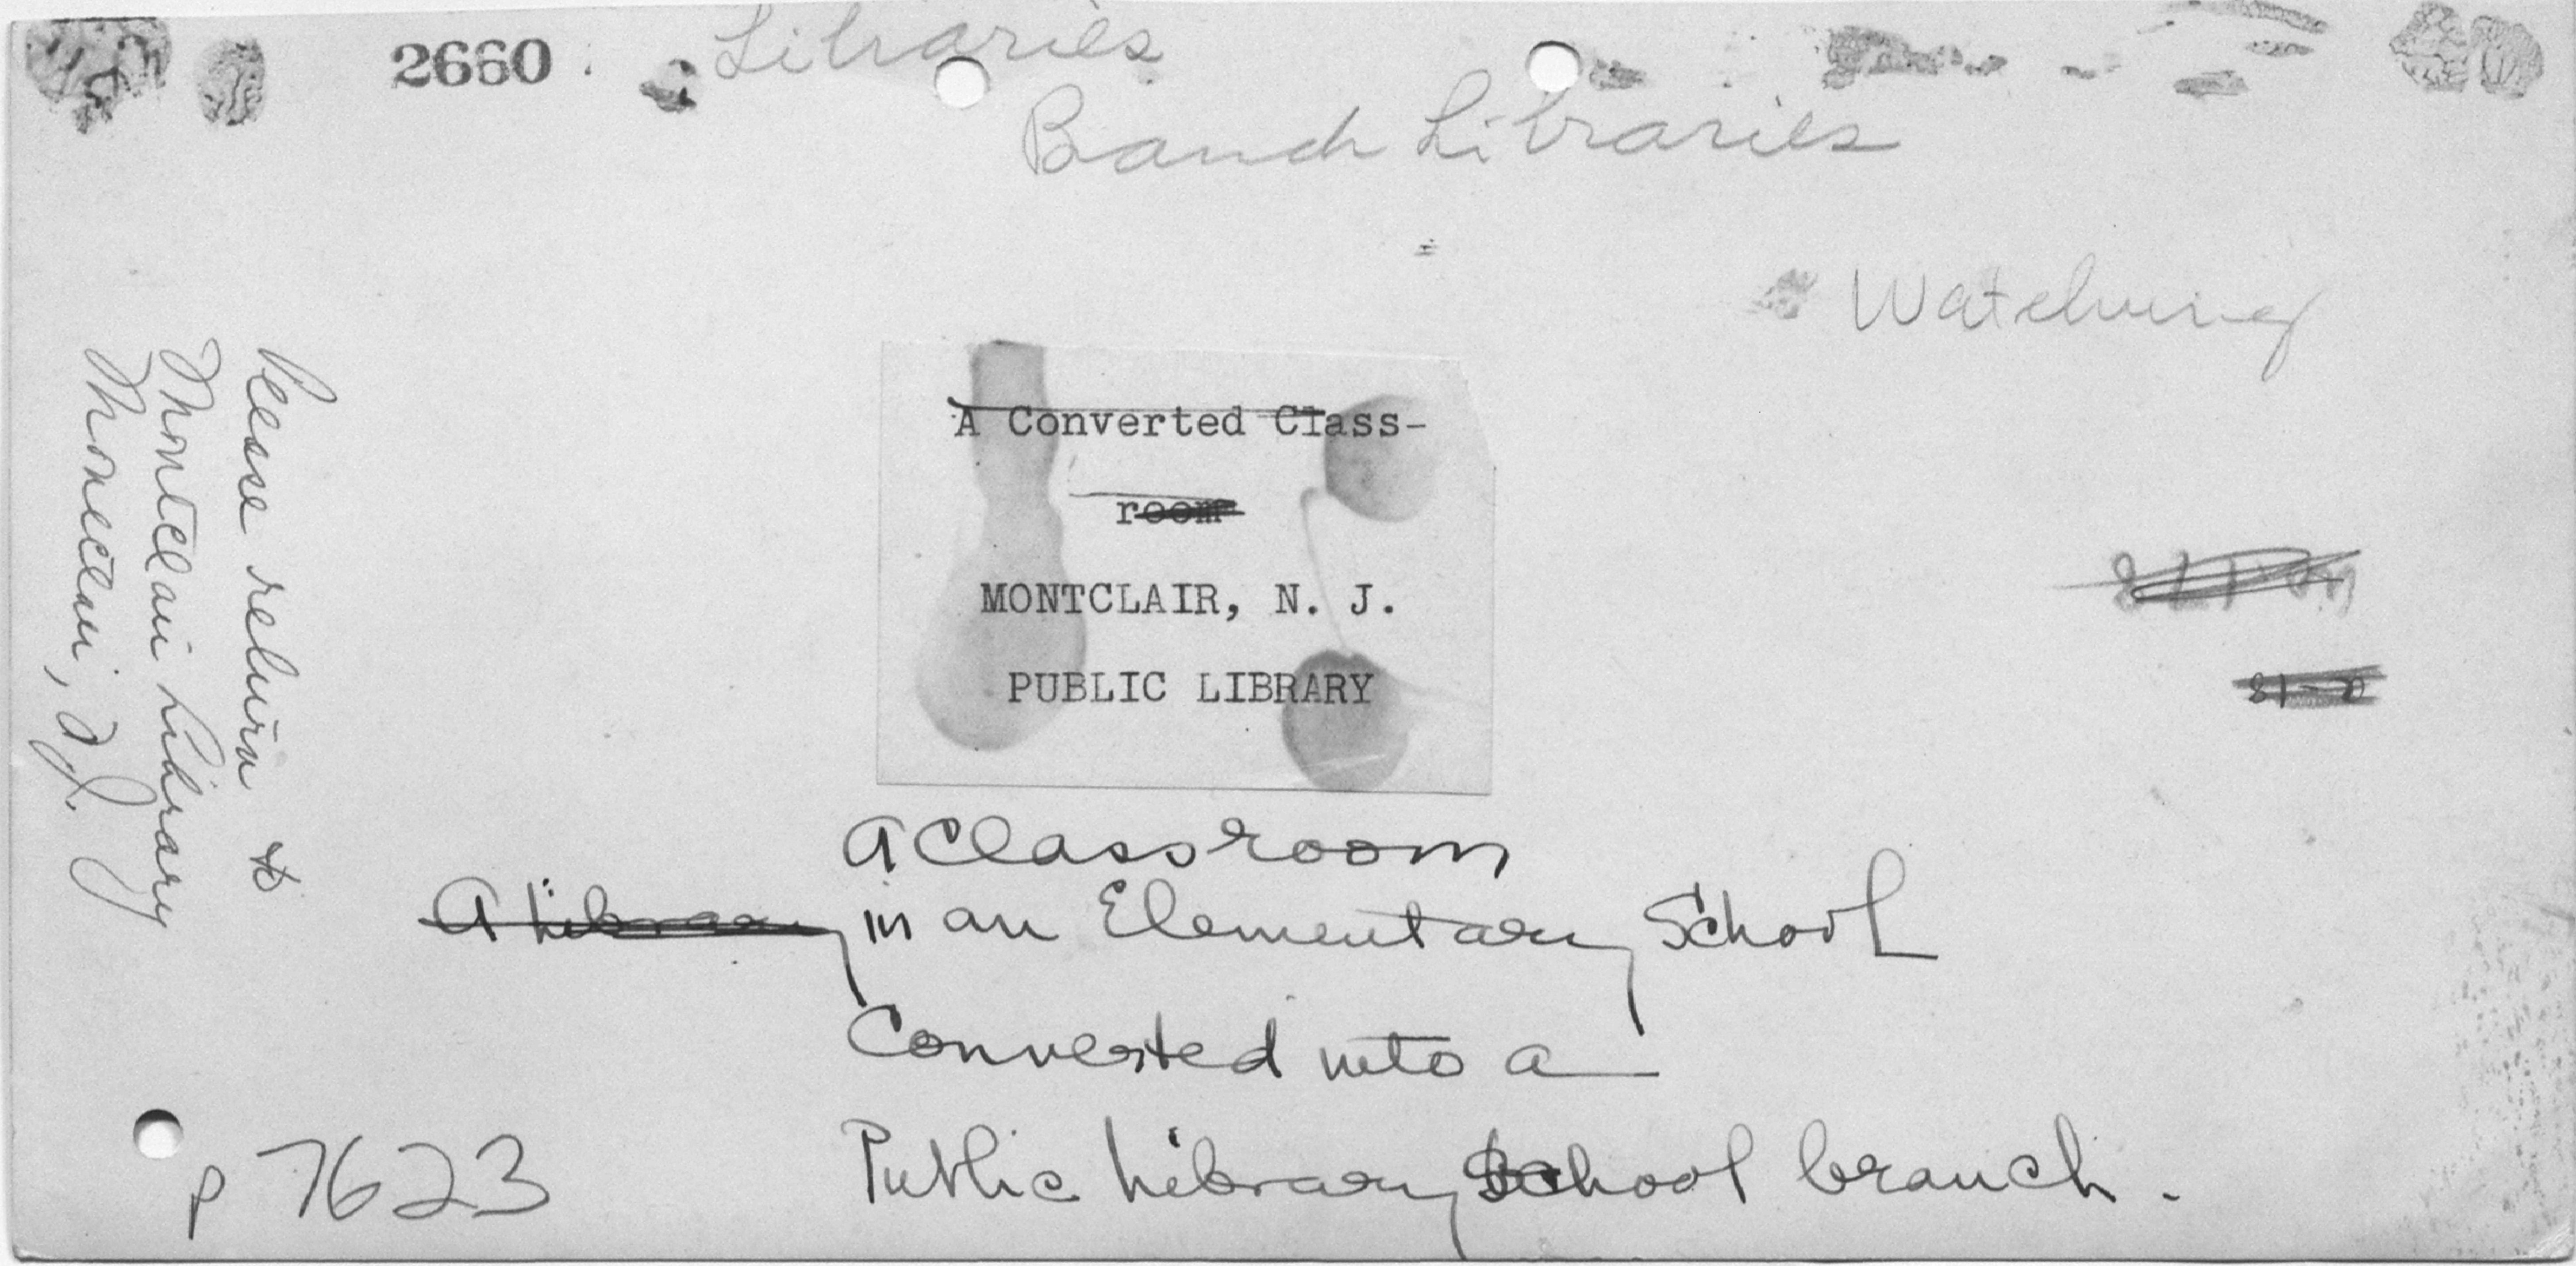 2660
Libraries
Branch Libraries
Watchung
Please return to
Montclair Library
Montclair, N.J.
A Converted Class-
room
MONTCLAIR, N. J.
PUBLIC LIBRARY
A Classroom
A Library in an Elementary School
Converted into a
Public Library School branch.
p 7623